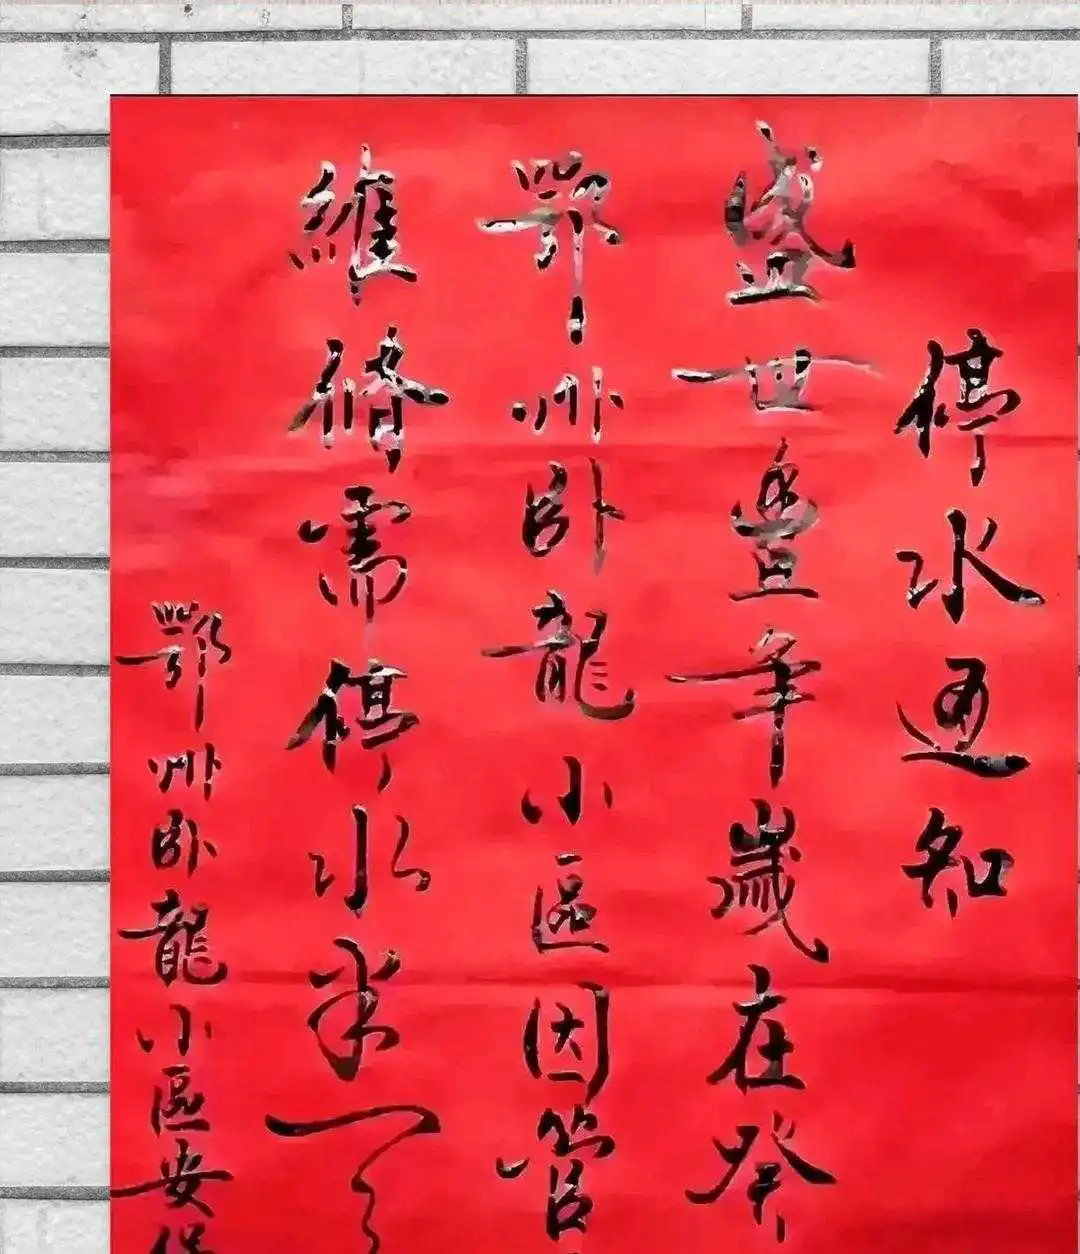 停水通知
盛世豊年歲在癸
鄂州卧龍小區因管
維脩需停水半天
鄂州卧龍小區安保